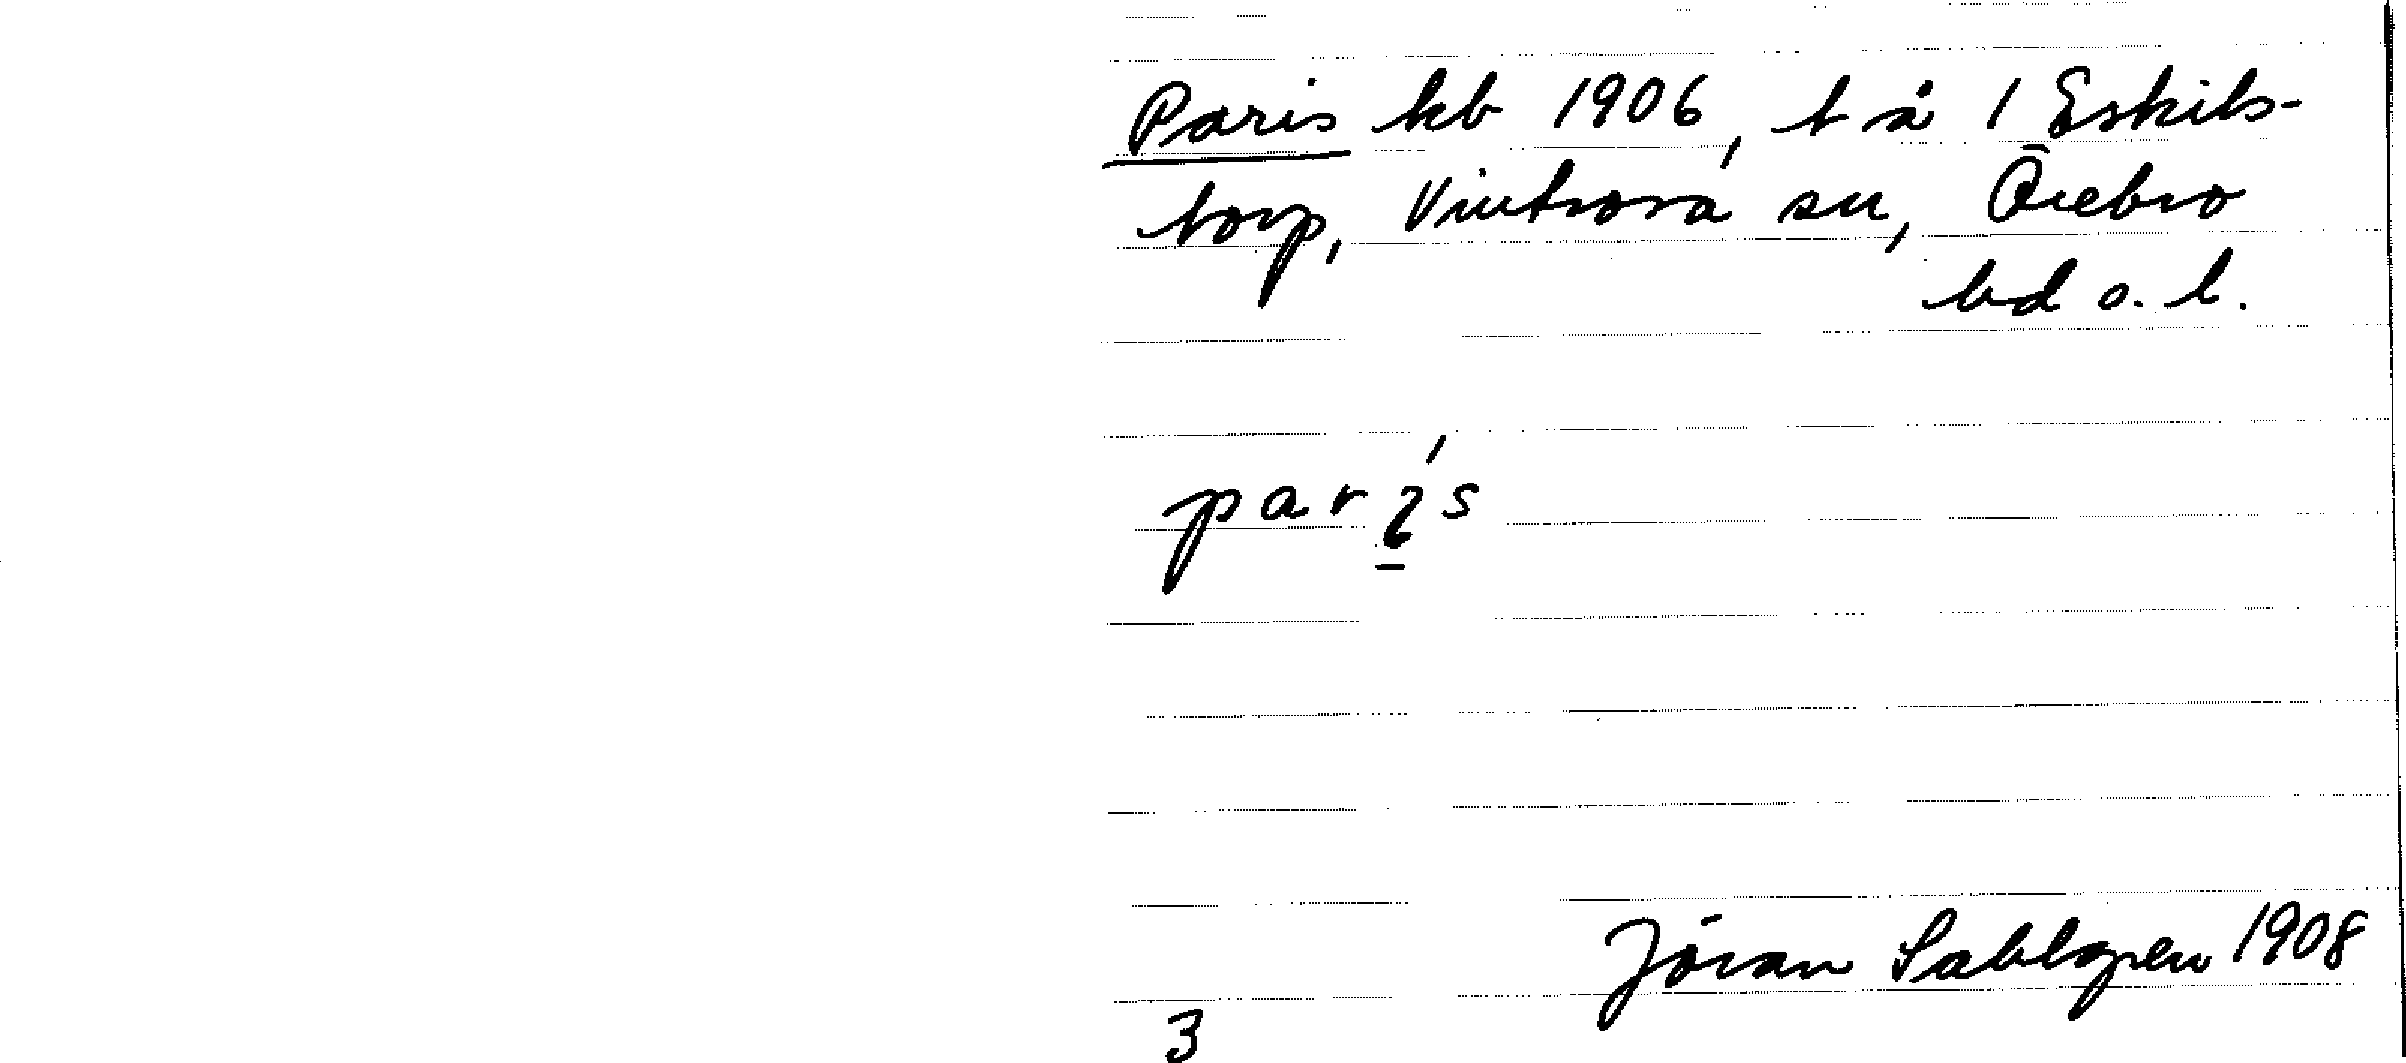 Paris kb 1906, t å 1 Eskils-
torp, Vintrosa sn, Örebro
hd o. l.
par ɩ́s
Jöran Sahlgren 1908
3